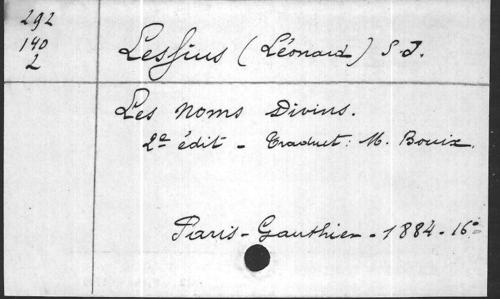 292
140
2
Lessius (Léonard) S.J.
Les Noms Divins.
2e édit - Traduct: M. Bouix.
Paris - Gauthier - 1884 - 16°